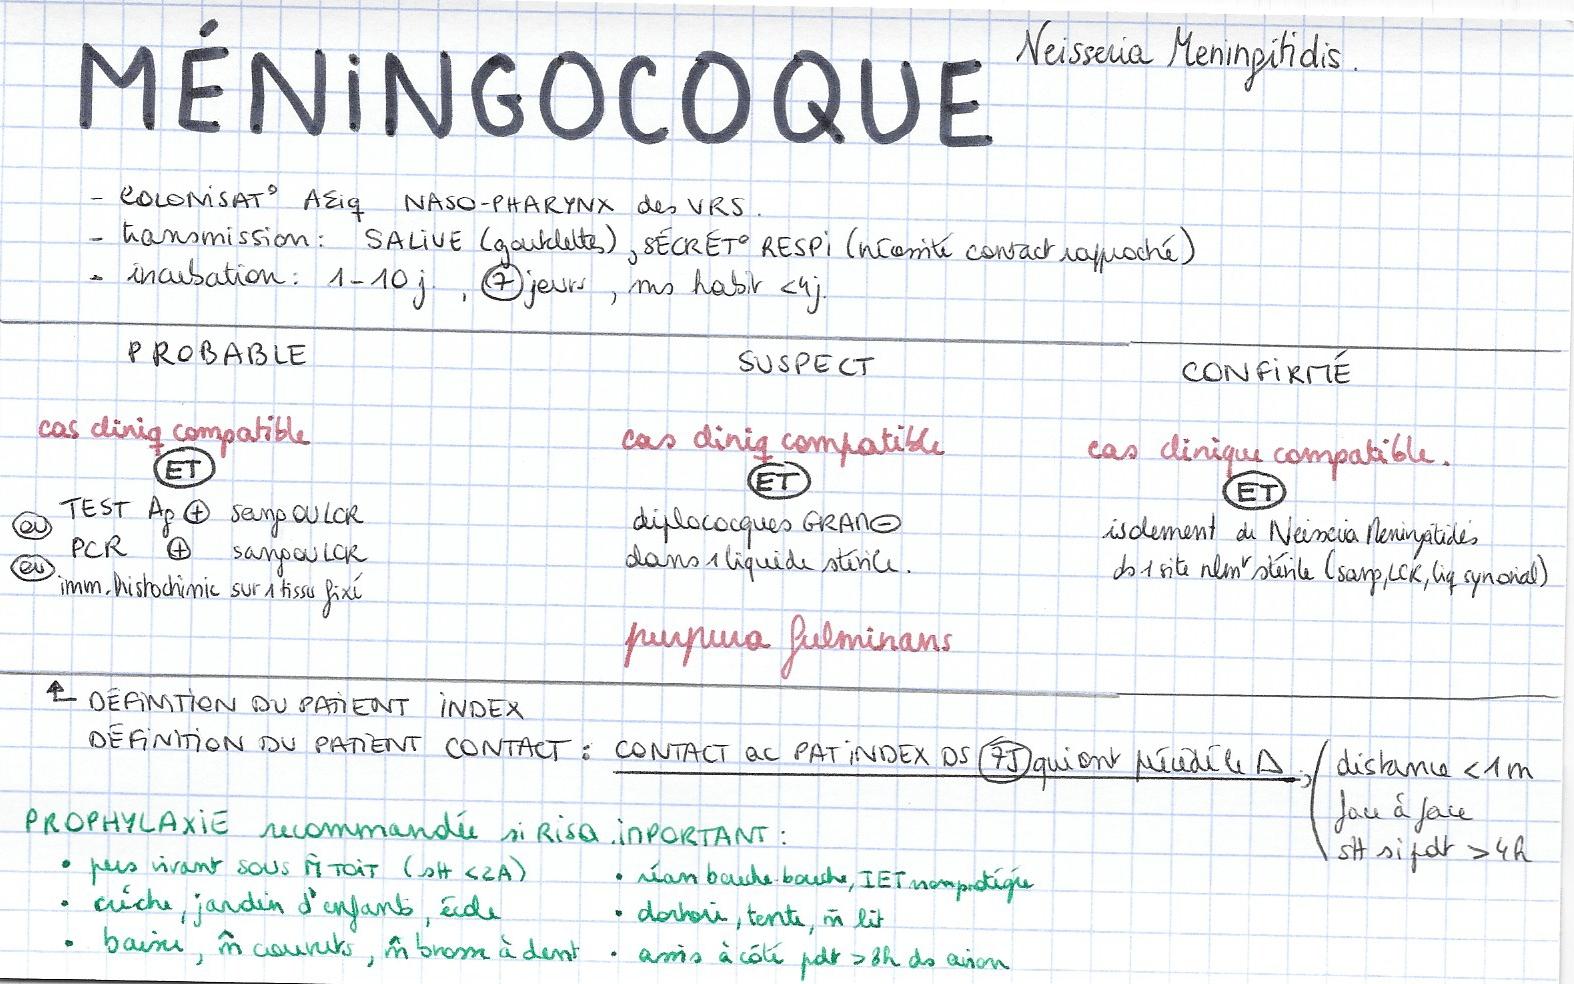 MÉNiNGOCOQUE
Neisseria Meningitidis.
- COLONiSAT° AΣiq NASO-PHARYNX des VRS.
- transmission : SALiVE (gouttelettes), SÉCRÉT° RESPi (nécessité contact rapproché)
- incubation : 1-10 j , 7 jours , ms habit <4j.
PROBABLE
cas cliniq compatible
ET
TEST Ag + sang OU LCR
ou
PCR + sang ou LCR
ou
imm. histochimie sur 1 tissu fixé
SUSPECT
cas cliniq compatible
ET
diplocoques GRAM -
dans 1 liquide stérile.
purpura fulminans
CONFiRMÉ
cas clinique compatible.
ET
isolement de Neisseria Meningitidis
ds 1 site nlmt stérile (sang, LCR, liq synovial)
DÉFiNiTiON DU PATiENT iNDEX
DÉFiNiTiON DU PATiENT CONTACT : CONTACT ac PAT iNDEX DS 7J qui ont précédé le Δ ;
distance < 1 m
face à face
sH si pdt > 4h
PROPHYLAXiE recommandée si RISQ iMPORTANT :
• pers vivant SOUS M̂ TOiT (sH <2A)
• crèche, jardin d'enfants, école
• baiser, m̂ couverts, m̂ brosse à dent
• réan bouche-bouche, IET non protégée
• dortoir, tente, m̂ lit
• assis à côté pdt > 8h ds avion